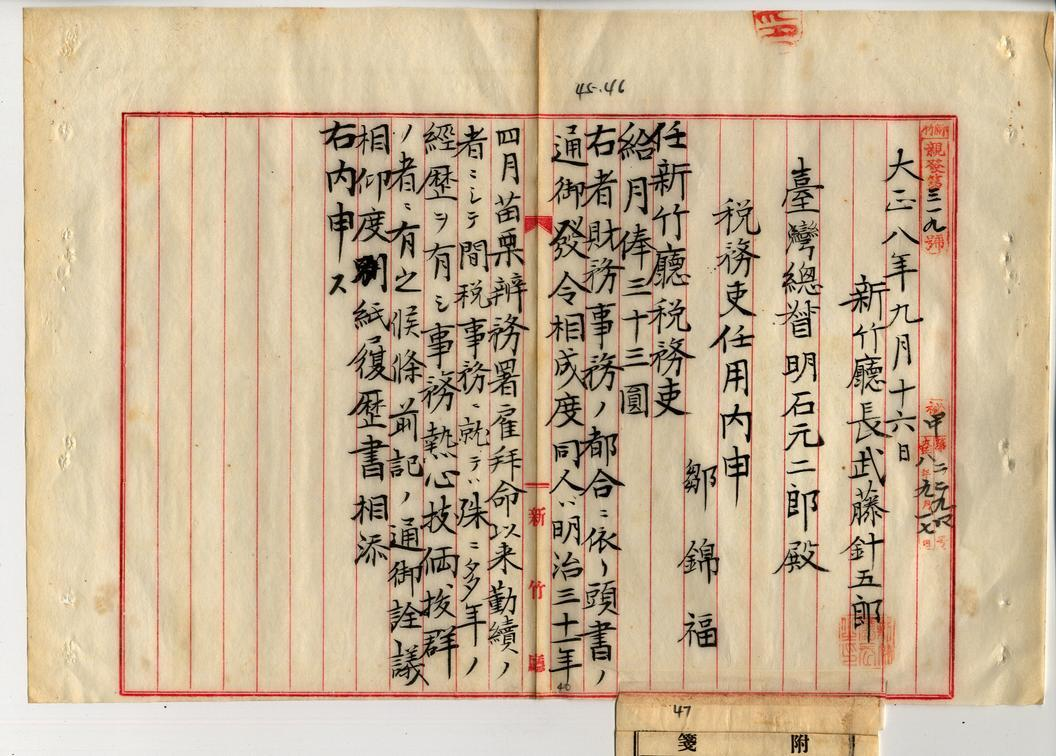 45.46
新竹
親發第三一九號
大正八年九月十六日
新竹廳長武藤針五郎
臺灣總督明石元二郎殿
税務吏任用内申
鄒錦福
任新竹廳税務吏
給月俸三十三圓
右者財務事務ノ都合ニ依リ頭書ノ
通御發令相成度同人ハ明治三十一年
四月苗栗辨務署雇拜命以来勤續ノ
者ニシテ間税事務ニ就テハ殊ニ多年ノ
經歷ヲ有シ事務熱心技倆拔群
ノ者ニ有之候條前記ノ通御詮議
相仰度別紙履歷書相添
右内申ス
新竹廳
46
47
附箋